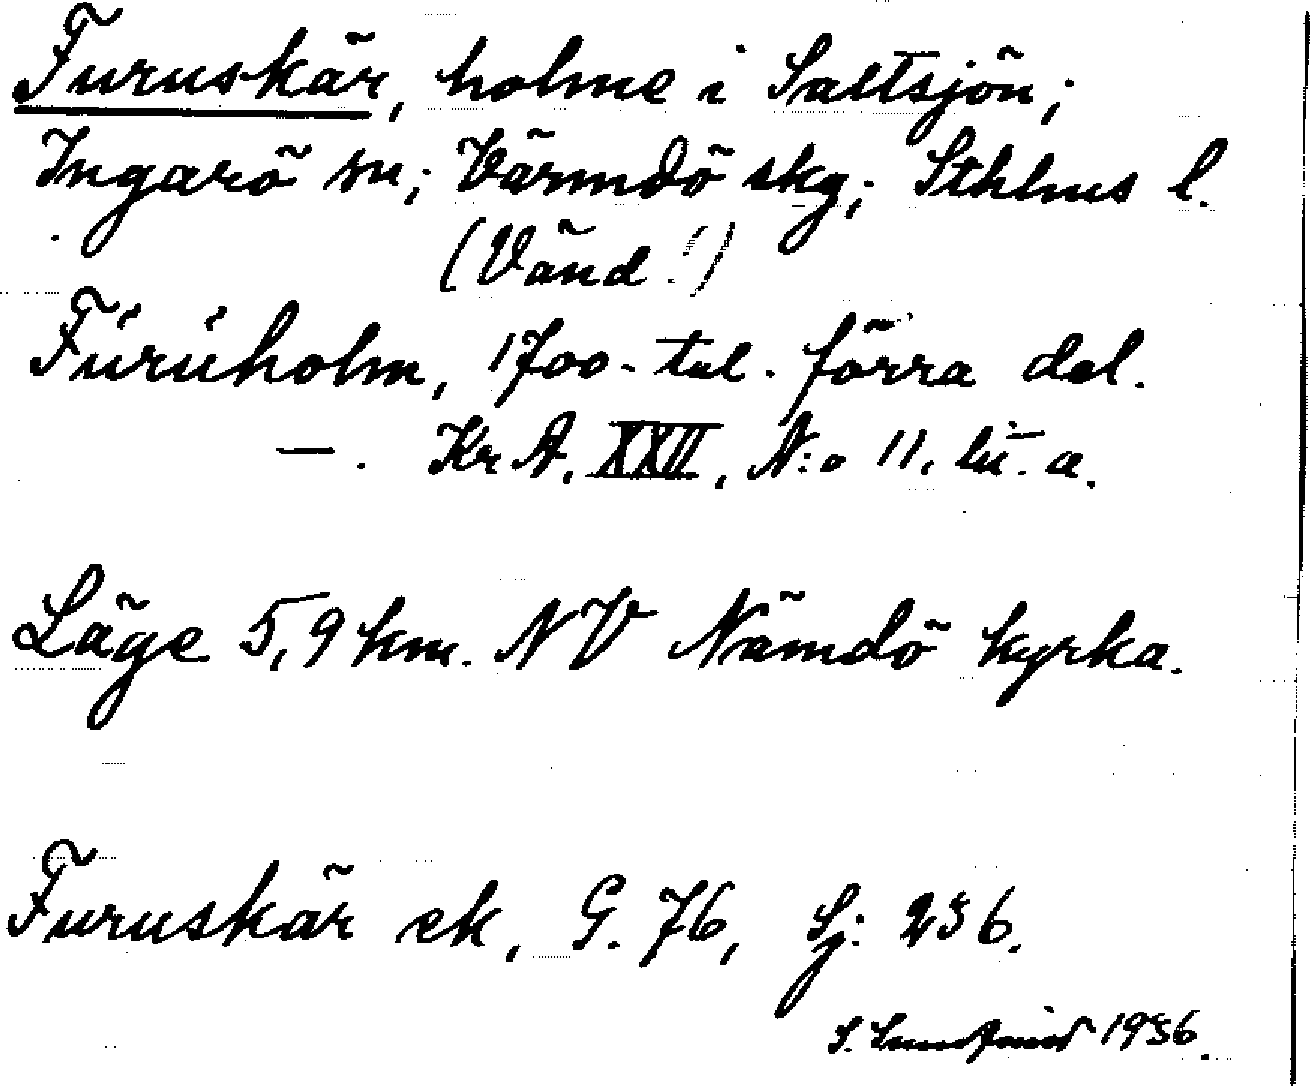 Furuskär, holme i Saltsjön;
Ingarö sn; Värmdö skg; Sthlms l.
(Vänd!)
Furuholm, 1700-tal. förra del.
—. Kr A. XXII, N:o 11. lit. a.
Läge 5,9 km. NV Nämdö kyrka.
Furuskär ek, G. 76, Sj: 236.
S. 1936.